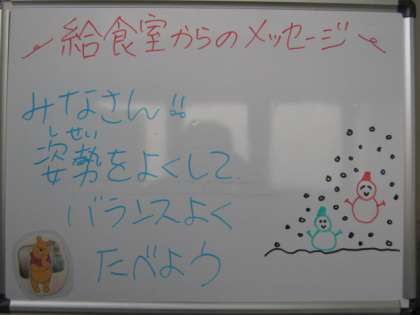 給食室からのメッセージ
みなさん!!
しせい
姿勢をよくして
バランスよく
たべよう